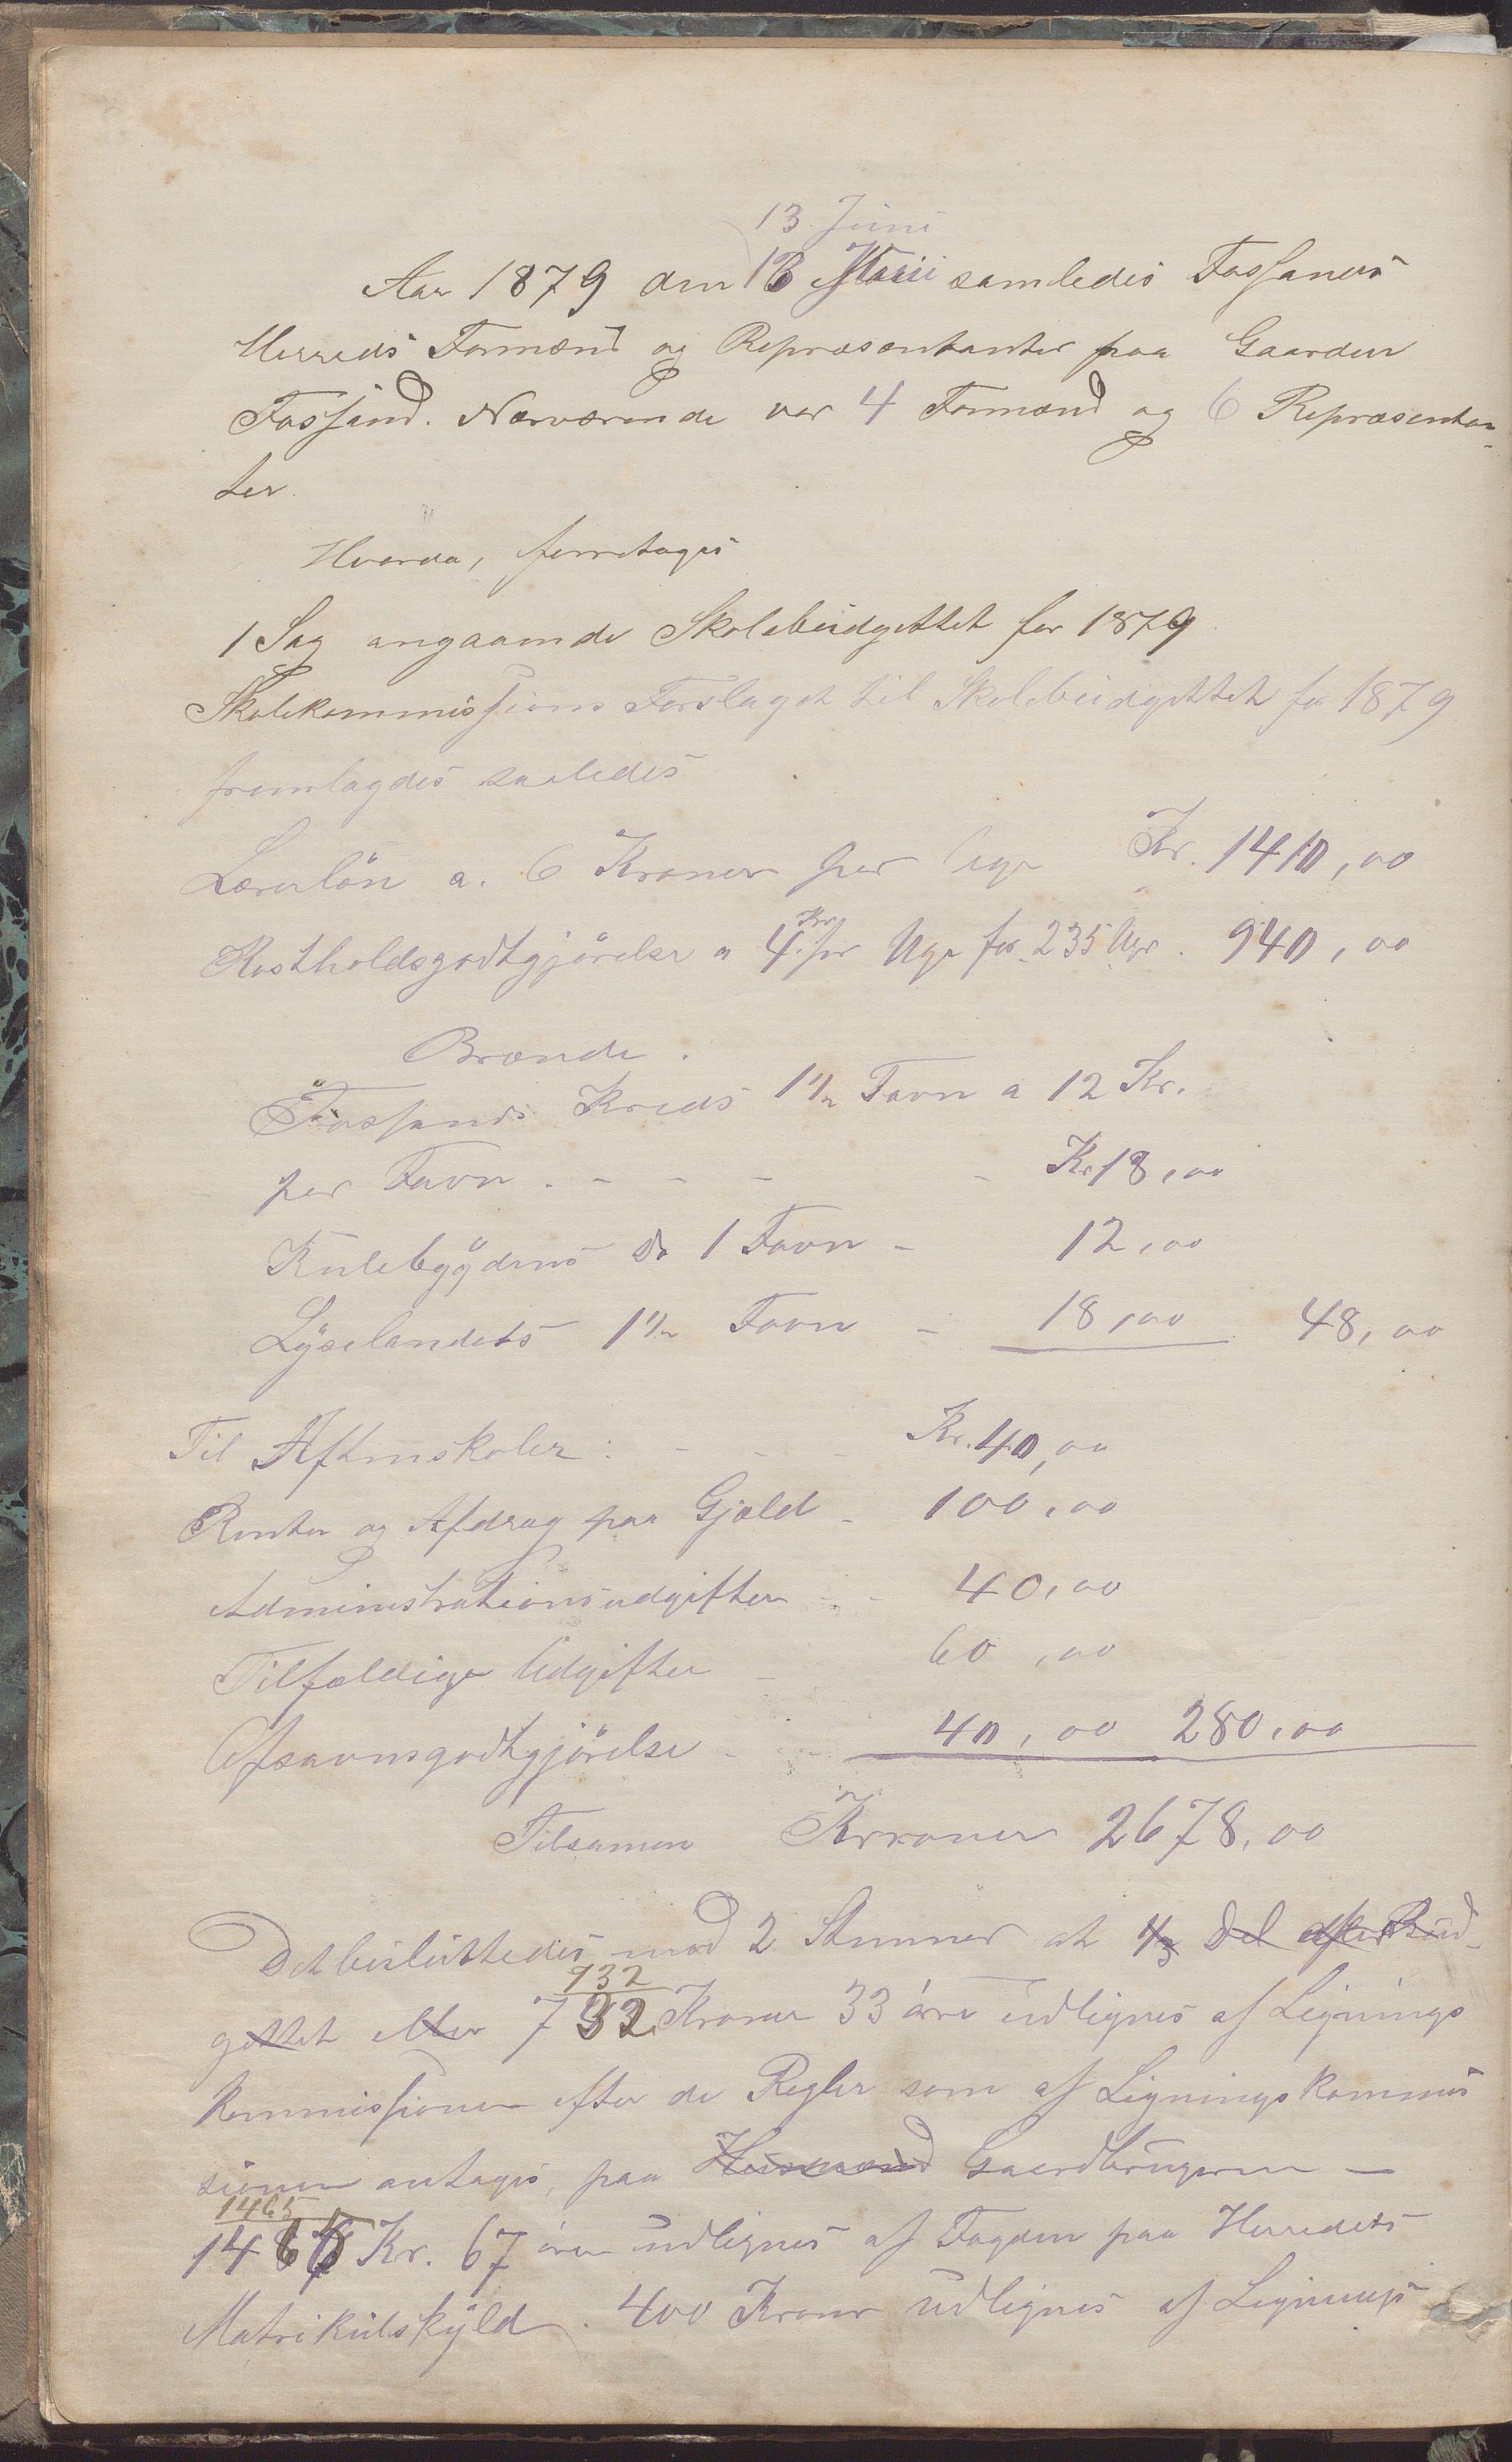 13 Juni
Aar 1879 den 13 Juni samledes Fossands
Herreds Formænd og Repræsentanter paa Gaarden
Fossand. Nærværende var 4 Formænd og 6 Repræsentan-
ter.
Hvorda, forretoges
1 Sag angaaende Skolebudgettet for 1879.
Skolekommissions Forslaget til Skolebudgettet for 1879
fremlagdes saaledes
Lærerlön a. 6 Kroner per Uge Kr. 1410,00
Kostholdsgodtgjörelse a 4 Kr. per Uge for 235 Uger. 940,00
Brænde.
Fossands Kreds 1½ Favn a 12 Kr.
per Favn . - - - - Kr 18,00
Kulebygdens do 1 Favn - 12,00
Lyselandets 1½ Favn - 18,00 48,00
Til Aftenskoler: - - - Kr. 40,00
Renter og Afdrag paa Gjæld - 100,00
Administrationsudgifter - - 40,00
Tilfældige Udgifter - 60,00
Afsavnsgodtgjörelse - - 40,00 280,00
Tilsamen Kroner 2678,00
Det besluttedes mod 2 Stemmer at ⅓ Del af Bud-
gettet eller 732 932 Kroner 33 öre udlignes af Lignings
kommissionen efter de Regler som af Ligningskommis
sionen antages, paa Husmænd Gaardbrugerne —
1465
1465 Kr. 67 öre udlignes af Fogden paa Herredets
Matrikulskyld. 400 Kroner udlignes af Lignings